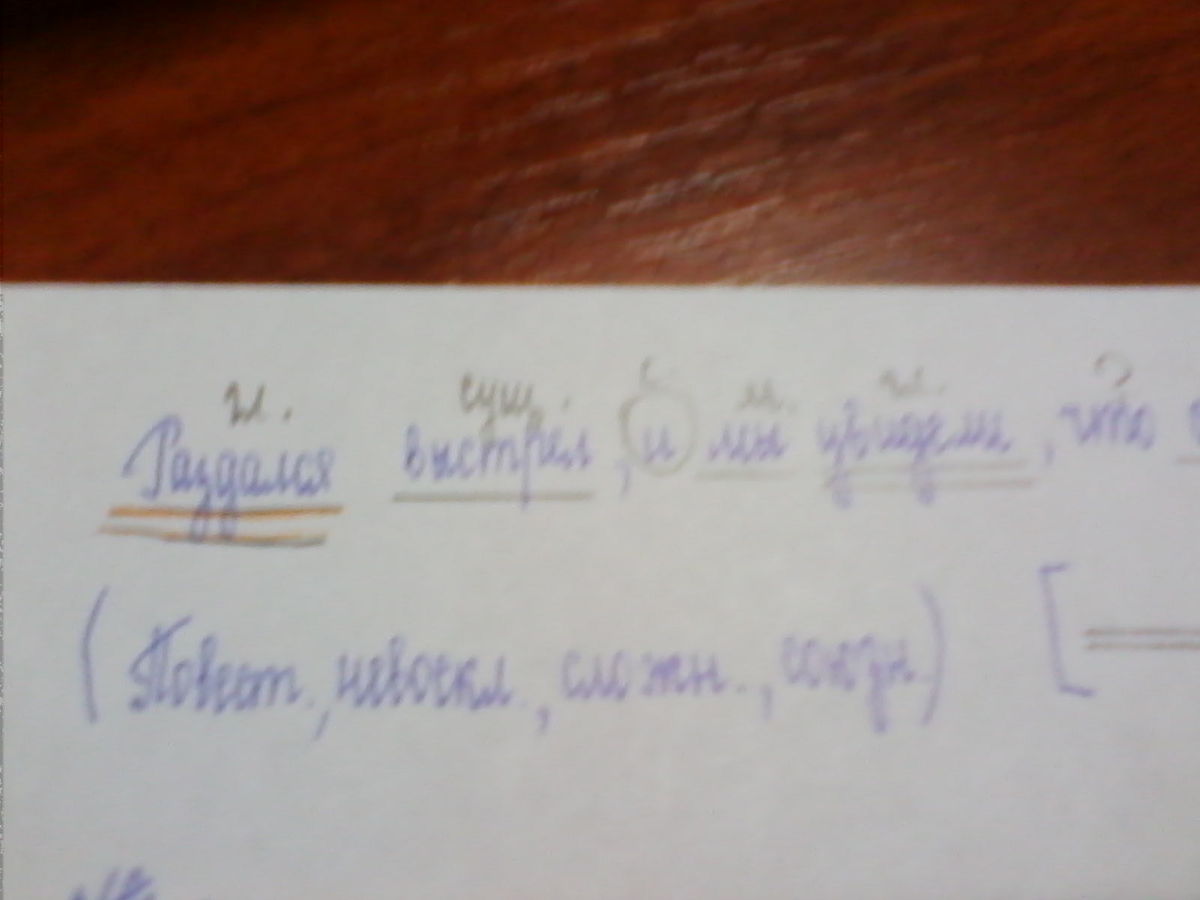 гл. сущ. с. м. гл.
Раздался выстрел, и мы увидели, что
(Повест., невоскл., сложн., союзн.) [